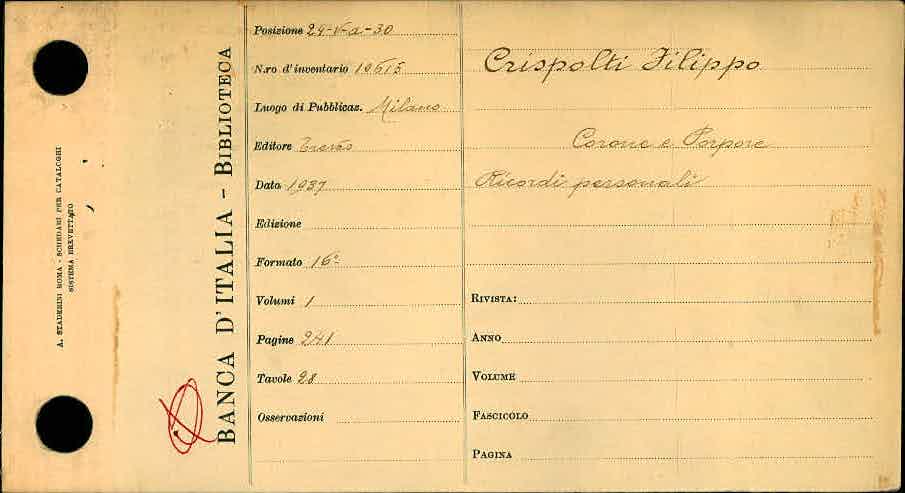 A. STADERINI ROMA - SCHEDARI PER CATALOGHI
SISTEMA BREVETTATO
BANCA D'ITALIA - BIBLIOTECA
Posizione 29-V-a-30
N.ro d'inventario 19615
Luogo di Pubblicaz. Milano
Editore Treves
Data 1937
Edizione
Formato 16°
Volumi 1
Pagine 241
Tavole 28
Osservazioni
Crispolti Filippo
Corone e Porpore
Ricordi personali
RIVISTA:
ANNO
VOLUME
FASCICOLO
PAGINA